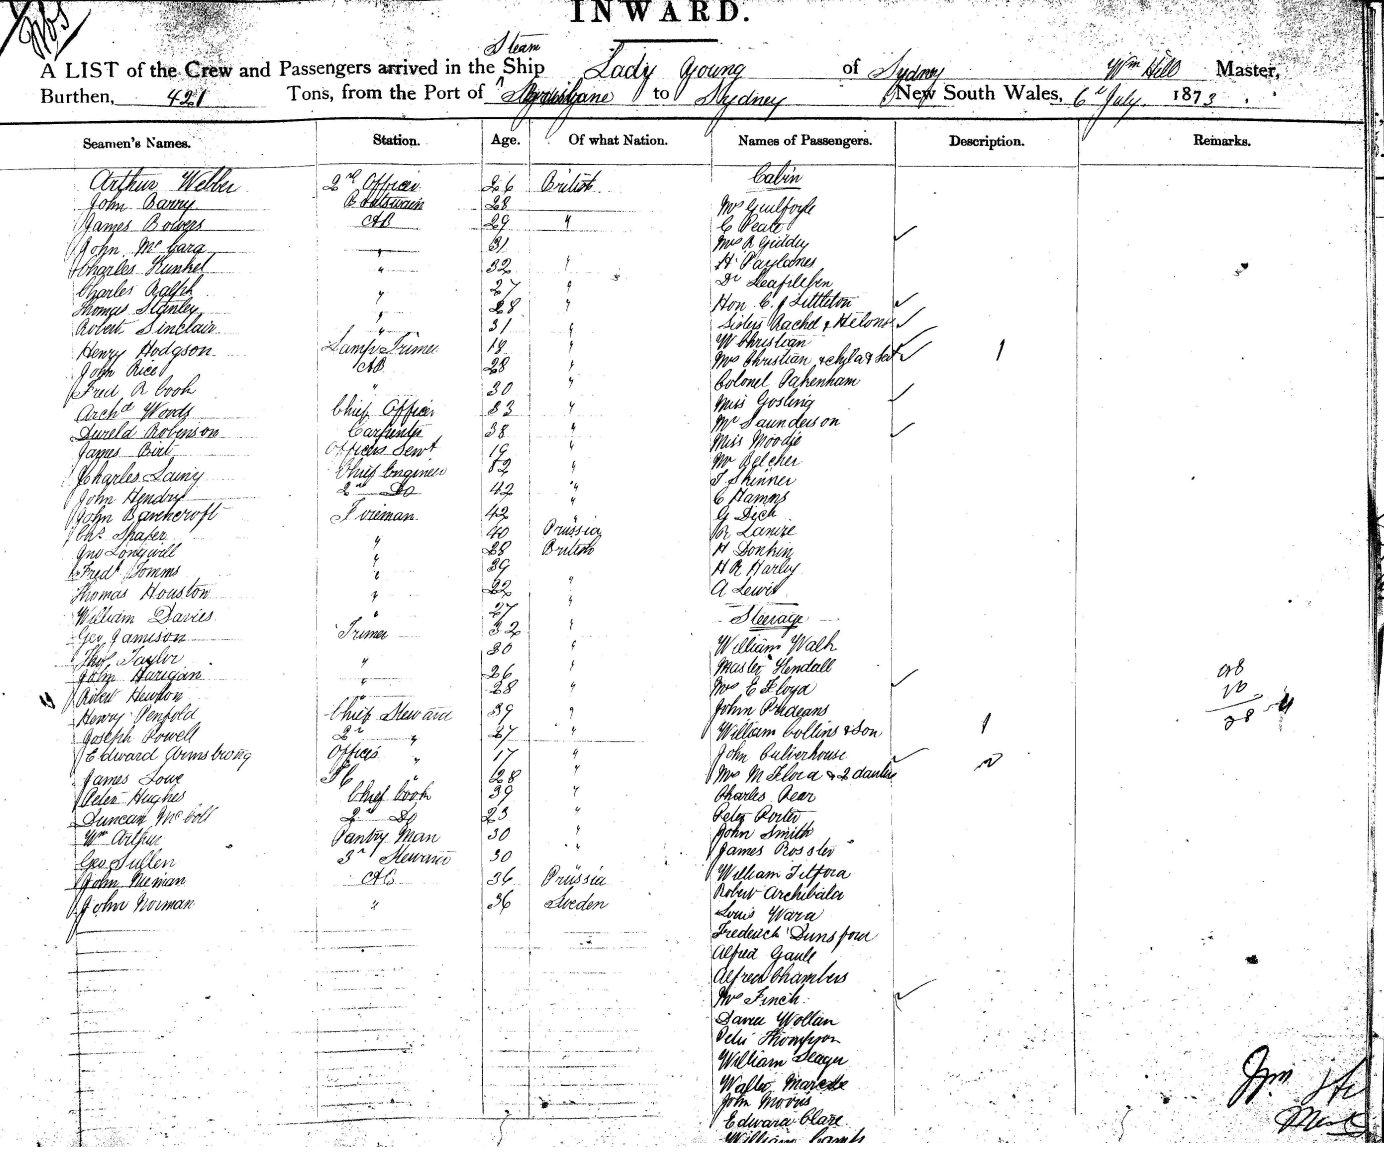 INWARD.
Steam
A LIST of the Crew and Passengers arrived in the Ship Lady Young of Sydney Wm Hill Master,
Burthen, 421 Tons, from the Port of Brisbane to Sydney New South Wales, 6th July 1873.
Seamen's Names. Station. Age. Of what Nation. Names of Passengers. Description. Remarks.
Arthur Webber 2nd Officer 26 British Cabin
John Barry Boatswain 28
Mrs Guilfoyle
James Bowers AB 29 " C Peate
John McGara " 31 Mrs R Giddy
Charles Kunkel " 32 " H
Charles Ralph " 27 " Dr
Thomas Stanley " 28 " Hon C. Littleton
Robert Sinclair " 31 " Sisters Rachel &
Henry Hodgson Lamp Trimer 18 " W Christian
Mrs Christian & 1
John Rice AB 28 "
Colonel Pakenham
Fred R Cook " 30 "
Miss Gosling
Archd Woods Chief Officer 33 "
Mr Saunderson
Robinson Carpenter 38 "
Miss Moodie
James Birt Officers Servt 19 "
Mr Belcher
Charles Laing Chief Engineer 52 "
T Skinner
John Hendry 2nd Do 42 "
C Hamms
John Bancroft Fireman 42 "
G Dick
Chs Shafer 40 Prussia
R
Jno Longwill " 28 British
H Donkin
Fredk Tomms " 39
H R Harley
Thomas Houston " 22 "
A Lewis
William Davies " 27 "
Steerage
Geo Jamison Trimer 32 "
Thos Taylor 30 "
William Walk
John Harigan " 26 "
Master Kendall
Robert Hewton " 28 "
Mrs E Floyd
Henry Penfold Chief Steward 39 "
John
Joseph Powell 2nd " 27 "
William Collins & Son 1
Edward Armstrong Officers " 17 "
John Culverhouse
James Lowe " 28 "
Mrs M & 2 2
Peter Hughes Chief Cook 39 "
Charles Rear
Duncan 2nd Do 23 "
Peter Porter
Wm Arthur Pantry Man 30 "
John Smith
Geo Sullen 3rd Steward 30 "
James
John Neiman AB 36 Prussia
William Titford
John Norman " 36 Sweden
Robert Archibald
Louis Wara
Frederick Dunsford
Alfred Gault
Alfred Chambers
Mrs Finch
Daniel Woltan
Peter Thompson
William Seager
Walter
John Morris
Edward Clare
William
Wm